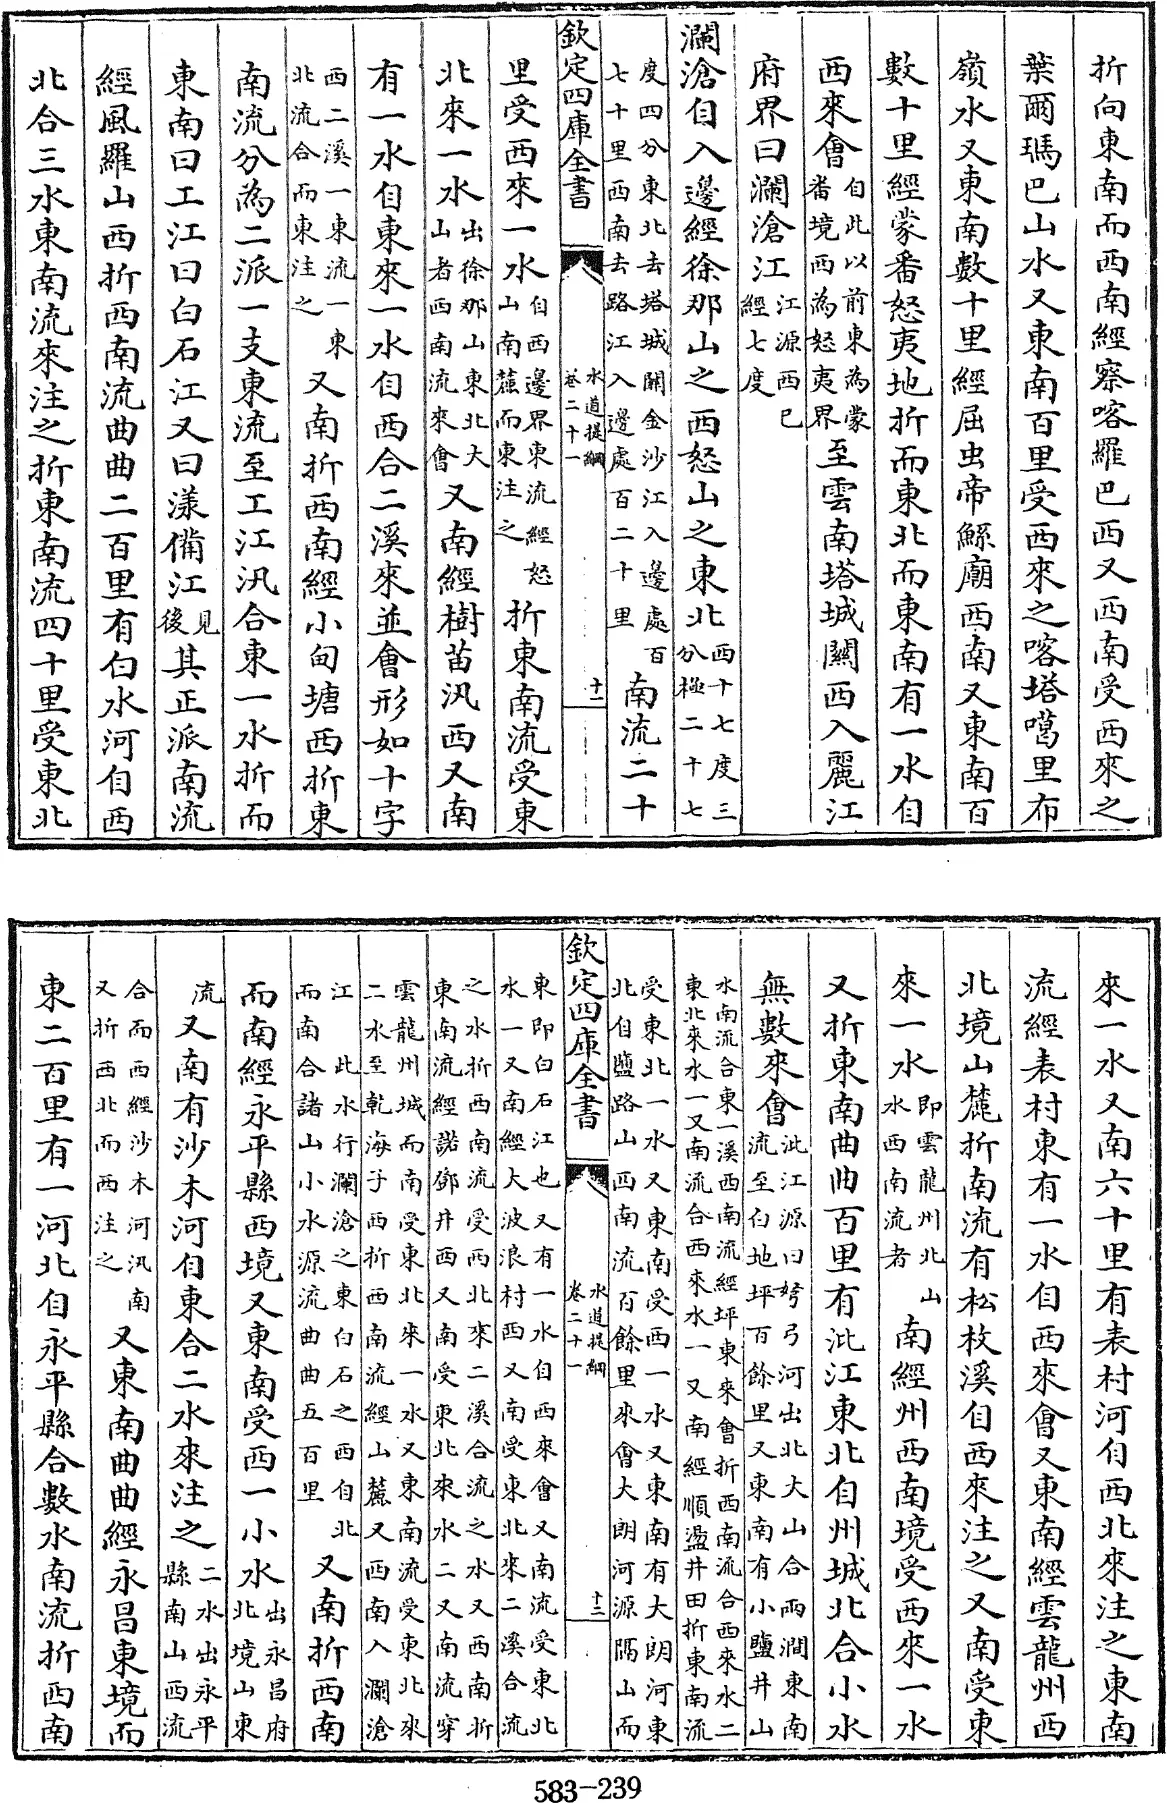 折向東南而西南經察喀羅巴西又西南受西來之
葉爾瑪巴山水又東南百里受西來之喀塔噶里布
嶺水又東南數十里經屈虫帝鯀廟西南又東南百
數十里經蒙番怒夷地折而東北而東南有一水自
西來會自此以前東為蒙番境西為怒夷界至雲南塔城關西入麗江
府界曰瀾滄江江源西已經七度
瀾滄自入邊經徐那山之西怒山之東北西十七度三分極二十七
度四分東北去塔城關金沙江入邊處百七十里西南去路江入邊處百二十里南流二十
欽定四庫全書 水道提綱 卷二十一 十一
里受西來一水自西邊界東流經怒山南麓而東注之折東南流受東
北來一水出徐那山東北大山者西南流來會又南經樹苗汛西又南
有一水自東來一水自西合二溪來並會形如十字
西二溪一東流一東北流合而東注之又南折西南經小甸塘西折東
南流分為二派一支東流至工江汛合東一水折而
東南曰工江曰白石江又曰漾備江見後其正派南流
經風羅山西折西南流曲曲二百里有白水河自西
北合三水東南流來注之折東南流四十里受東北
來一水又南六十里有表村河自西北來注之東南
流經表村東有一水自西來會又東南經雲龍州西
北境山麓折南流有松枚溪自西來注之又南受東
來一水即雲龍州北山水西南流者南經州西南境受西來一水
又折東南曲曲百里有沘江東北自州城北合小水
無數來會沘江源曰弩弓河出北大山合兩澗東南流至白地坪百餘里又東南有小鹽井山
水南流合東一溪西南流經坪東來會折西南流合西來水二東北來水一又南流合西來水一又南經順盪井田折東南流
受東北一水又東南受西一水又東南有大朗河東北自鹽路山西南流百餘里來會大朗河源隔山而
欽定四庫全書 水道提綱 卷二十一 十二
東即白石江也又有一水自西來會又南流受東北水一又南經大波浪村西又南受東北來二溪合流
之水折西南流受西北來二溪合流之水又西南折東南流經諾鄧井西又南受東北來水二又南流穿
雲龍州城而南受東北來一水又東南流受東北來二水至乾海子西折西南流經山麓又西南入瀾滄
江此水行瀾滄之東白石之西自北而南合諸山小水源流曲曲五百里又南折西南
而南經永平縣西境又東南受西一小水出永昌府北境山東
流又南有沙木河自東合二水來注之二水出永平縣南山西流
合而西經沙木河汛南又折西北而西注之又東南曲曲經永昌東境而
東二百里有一河北自永平縣合數水南流折西南
583-239